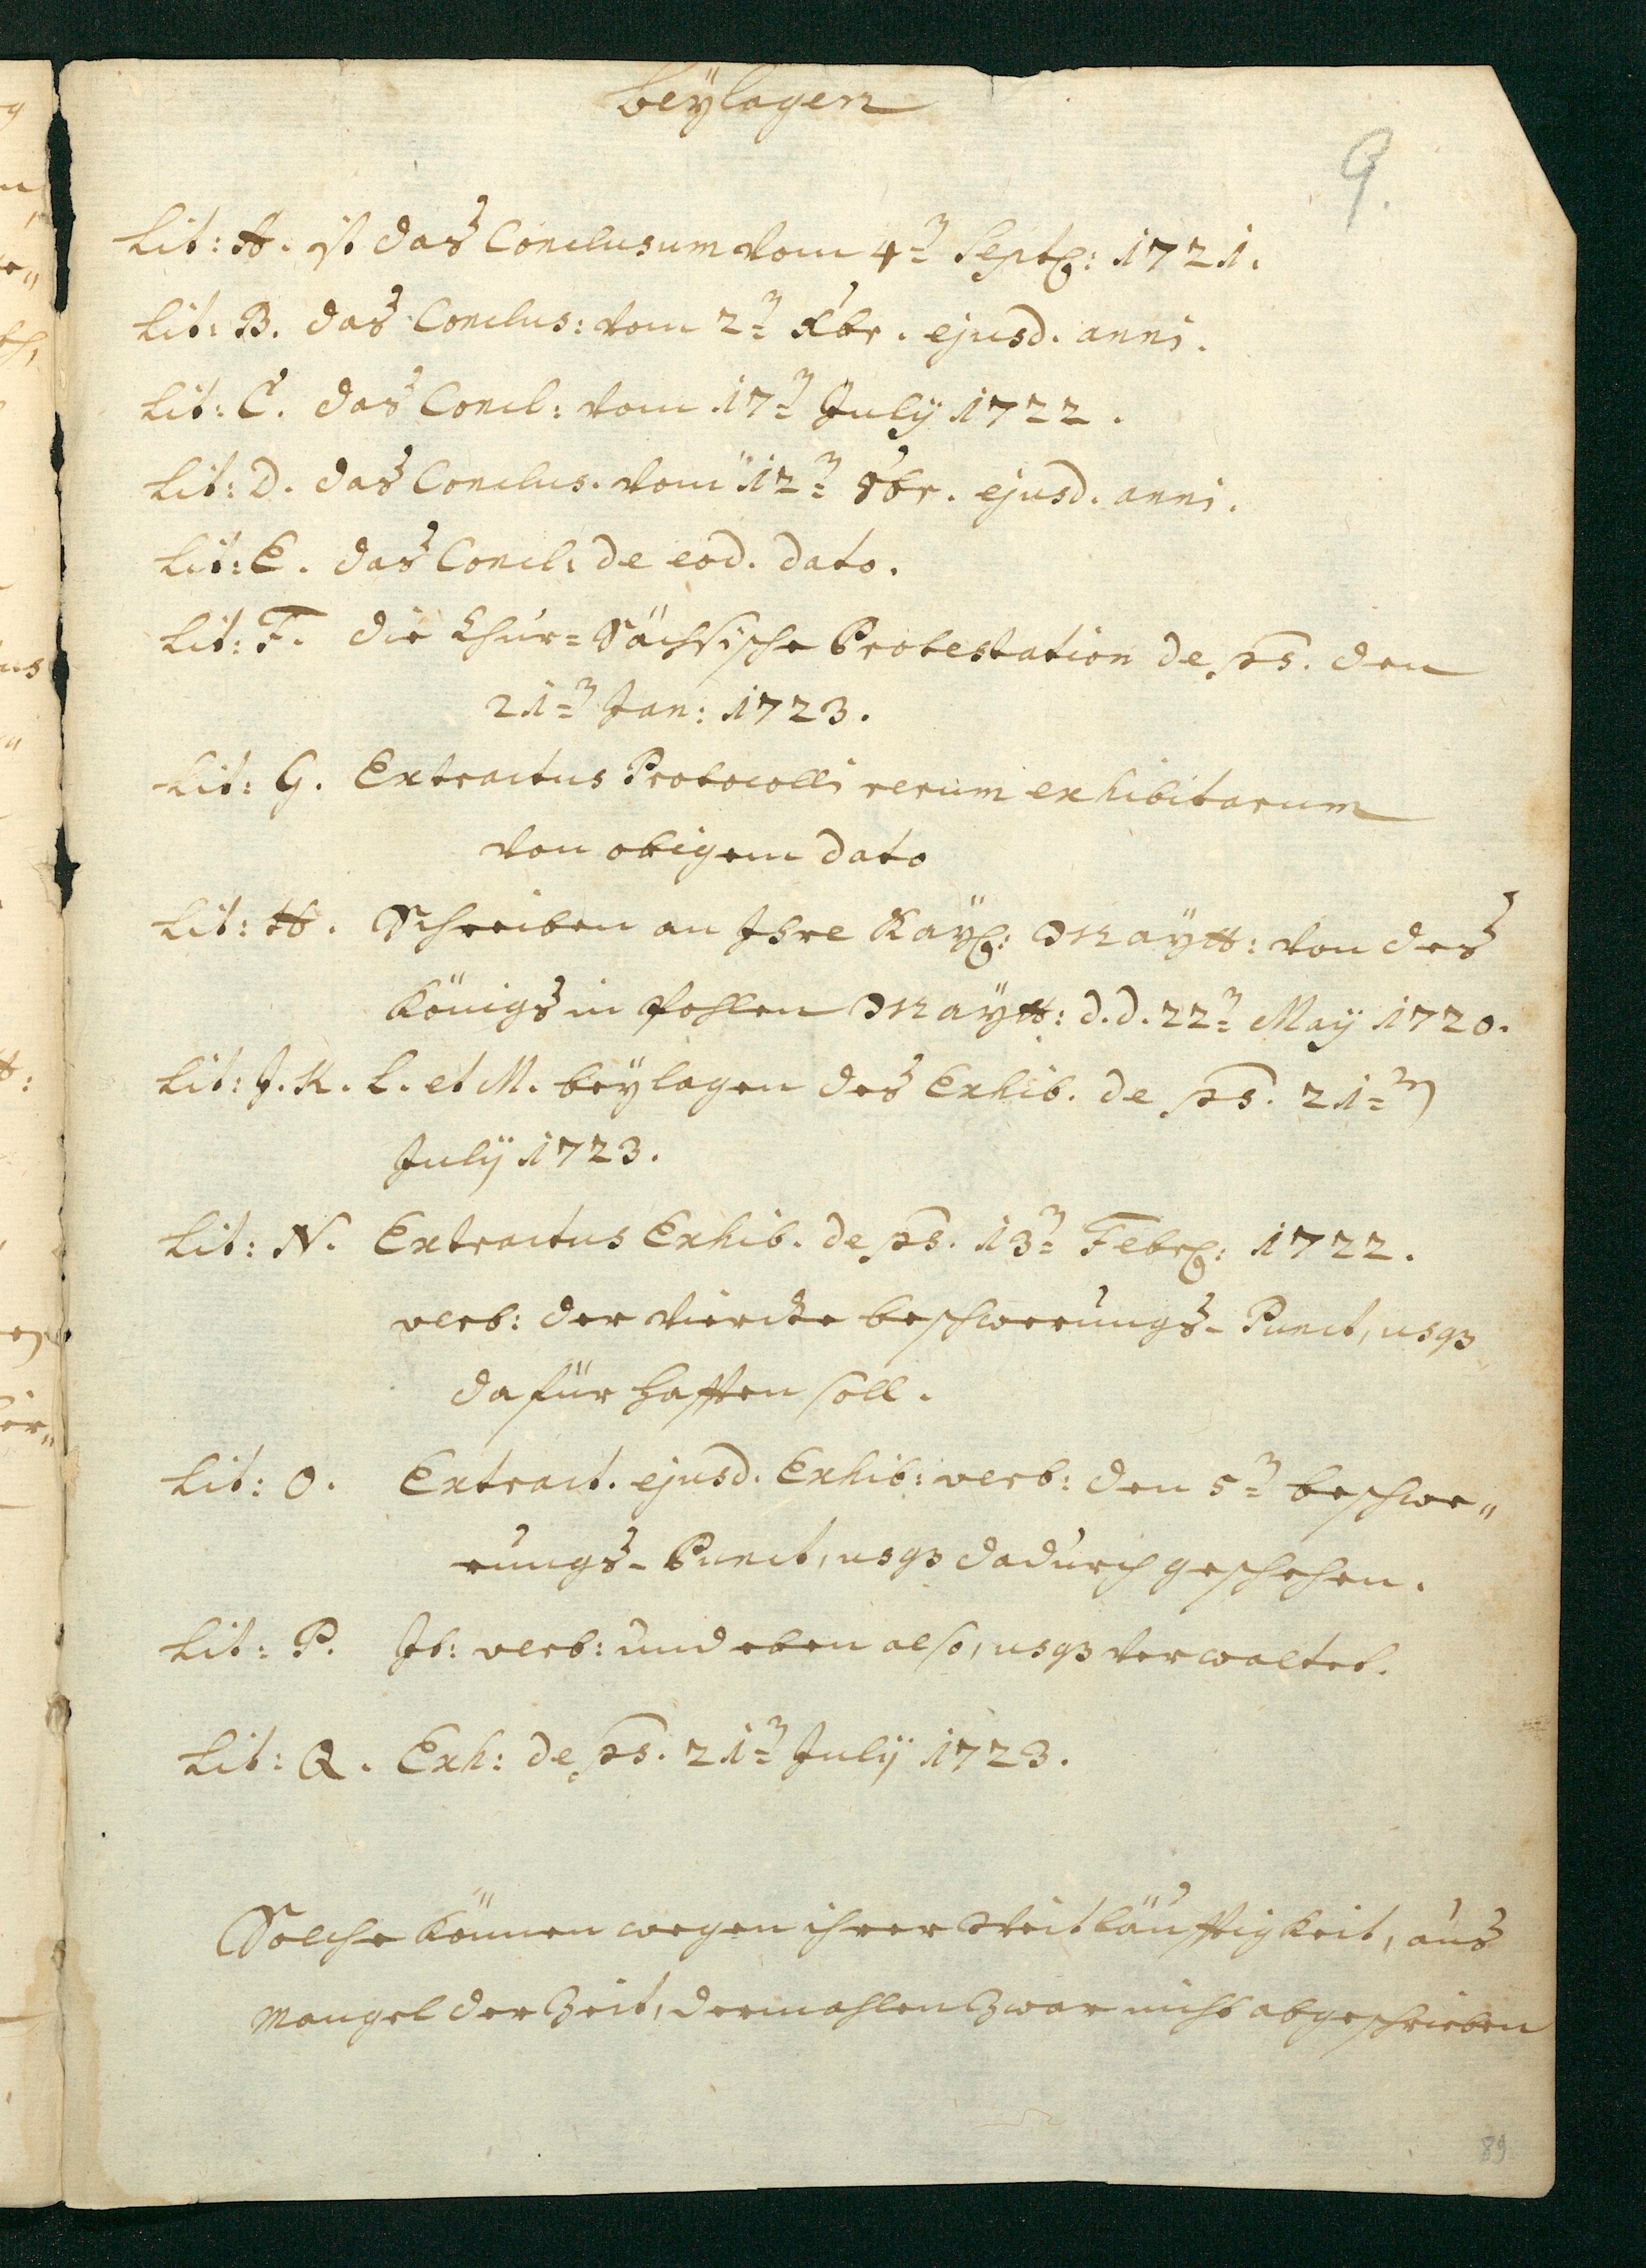 beÿlagen
9.
Lit: A. ist das Conclusum vom 4ten Septr: 1721.
Lit: B. das Conclus: vom 2ten Xbr. ejusd. anni.
Lit: C. das Concl: vom 17ten Julÿ 1722.
Lit: D. das Conclus. vom 12ten 8br. ejusd. anni.
Lit: E. das Concl: de eod. dato.
Lit: F. die Chur=Sächsische Protestation de ps. den
21ten Jan: 1723.
Lit: G. Extractus Protocolli rerum exhibitarum
von obigem dato
Lit: H. Schreiben an Ihre Kaÿl: Maÿtt: von des
Königs in Pohlen Maÿtt: d.d. 22ten Maÿ 1720.
Lit: J. K. L. et M. beÿlagen des Exhib. de ps. 21ten
Julÿ 1723.
Lit: N. Extractus Exhib. de ps. 13ten Febr: 1722.
verb: der vierdte beschwerungs-Punct, usq3
dafür hafften soll.
Lit: O. Extract. ejusd. Exhib: verb: den 5ten beschwe„
rungs-Punct, usq3 dadurch geschehen.
Lit: P. It: verb: und eben also, usq3 verwaltet.
Lit: Q. Exh: de ps. 21ten Julÿ 1723.
Solche können wegen ihrer Weitläufftigkeit, aus
Mangel der Zeit, dermahlen zwar nicht abgeschrieben
89